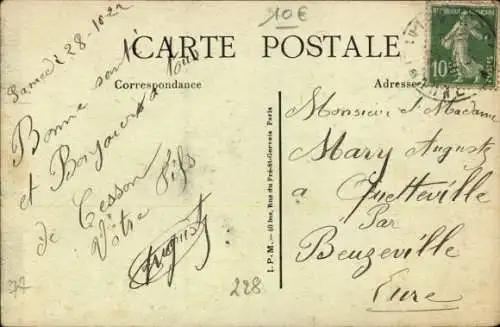 10€
CARTE POSTALE
Correspondance
Adresse
10
Samedi 28-10-22
Bonne santé
et Bonjour à tous
de Cesson
Vôtre fils
August
Monsieur & Madame
Mary Auguste
à Quetteville
Par
Beuzeville
Eure
I. P. M. — 40 bis, Rue du Pré-St-Gervais Paris
228